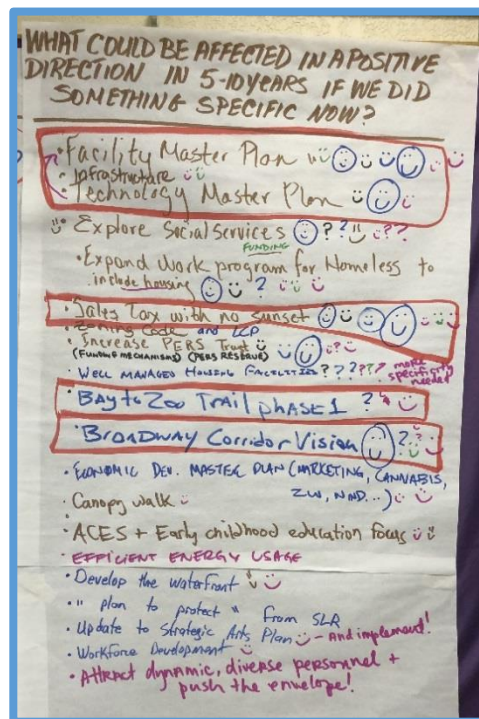 WHAT COULD BE AFFECTED IN A POSITIVE
DIRECTION IN 5-10 YEARS IF WE DID
SOMETHING SPECIFIC NOW?
• Facility Master Plan
• Infrastructure
• Technology Master Plan
Explore Social Services ? ? ??
FUNDING
• Expand work program for Homeless to
include housing ?
• Sales Tax with no sunset
• Zoning Code and LCP
• Increase PERS Trust ?
(FUNDING MECHANISMS) (PERS RESERVE)
• WELL MANAGED HOUSING FACILITIES ? ? ? ? ? more
specificity
needed
• BAY to ZOO Trail phase 1 ?
• BROADWAY Corridor Vision ? ?
• ECONOMIC DEV. MASTER PLAN (MARKETING, CANNABIS,
ZW, NND...)
• Canopy walk
• ACES + Early childhood education focus
• EFFICIENT ENERGY USAGE
• Develop the waterfront
• " plan to protect " from SLR
• Update to Strategic Arts Plan - And implement!
• Workforce Development
• Attract dynamic, diverse personnel +
push the envelope!